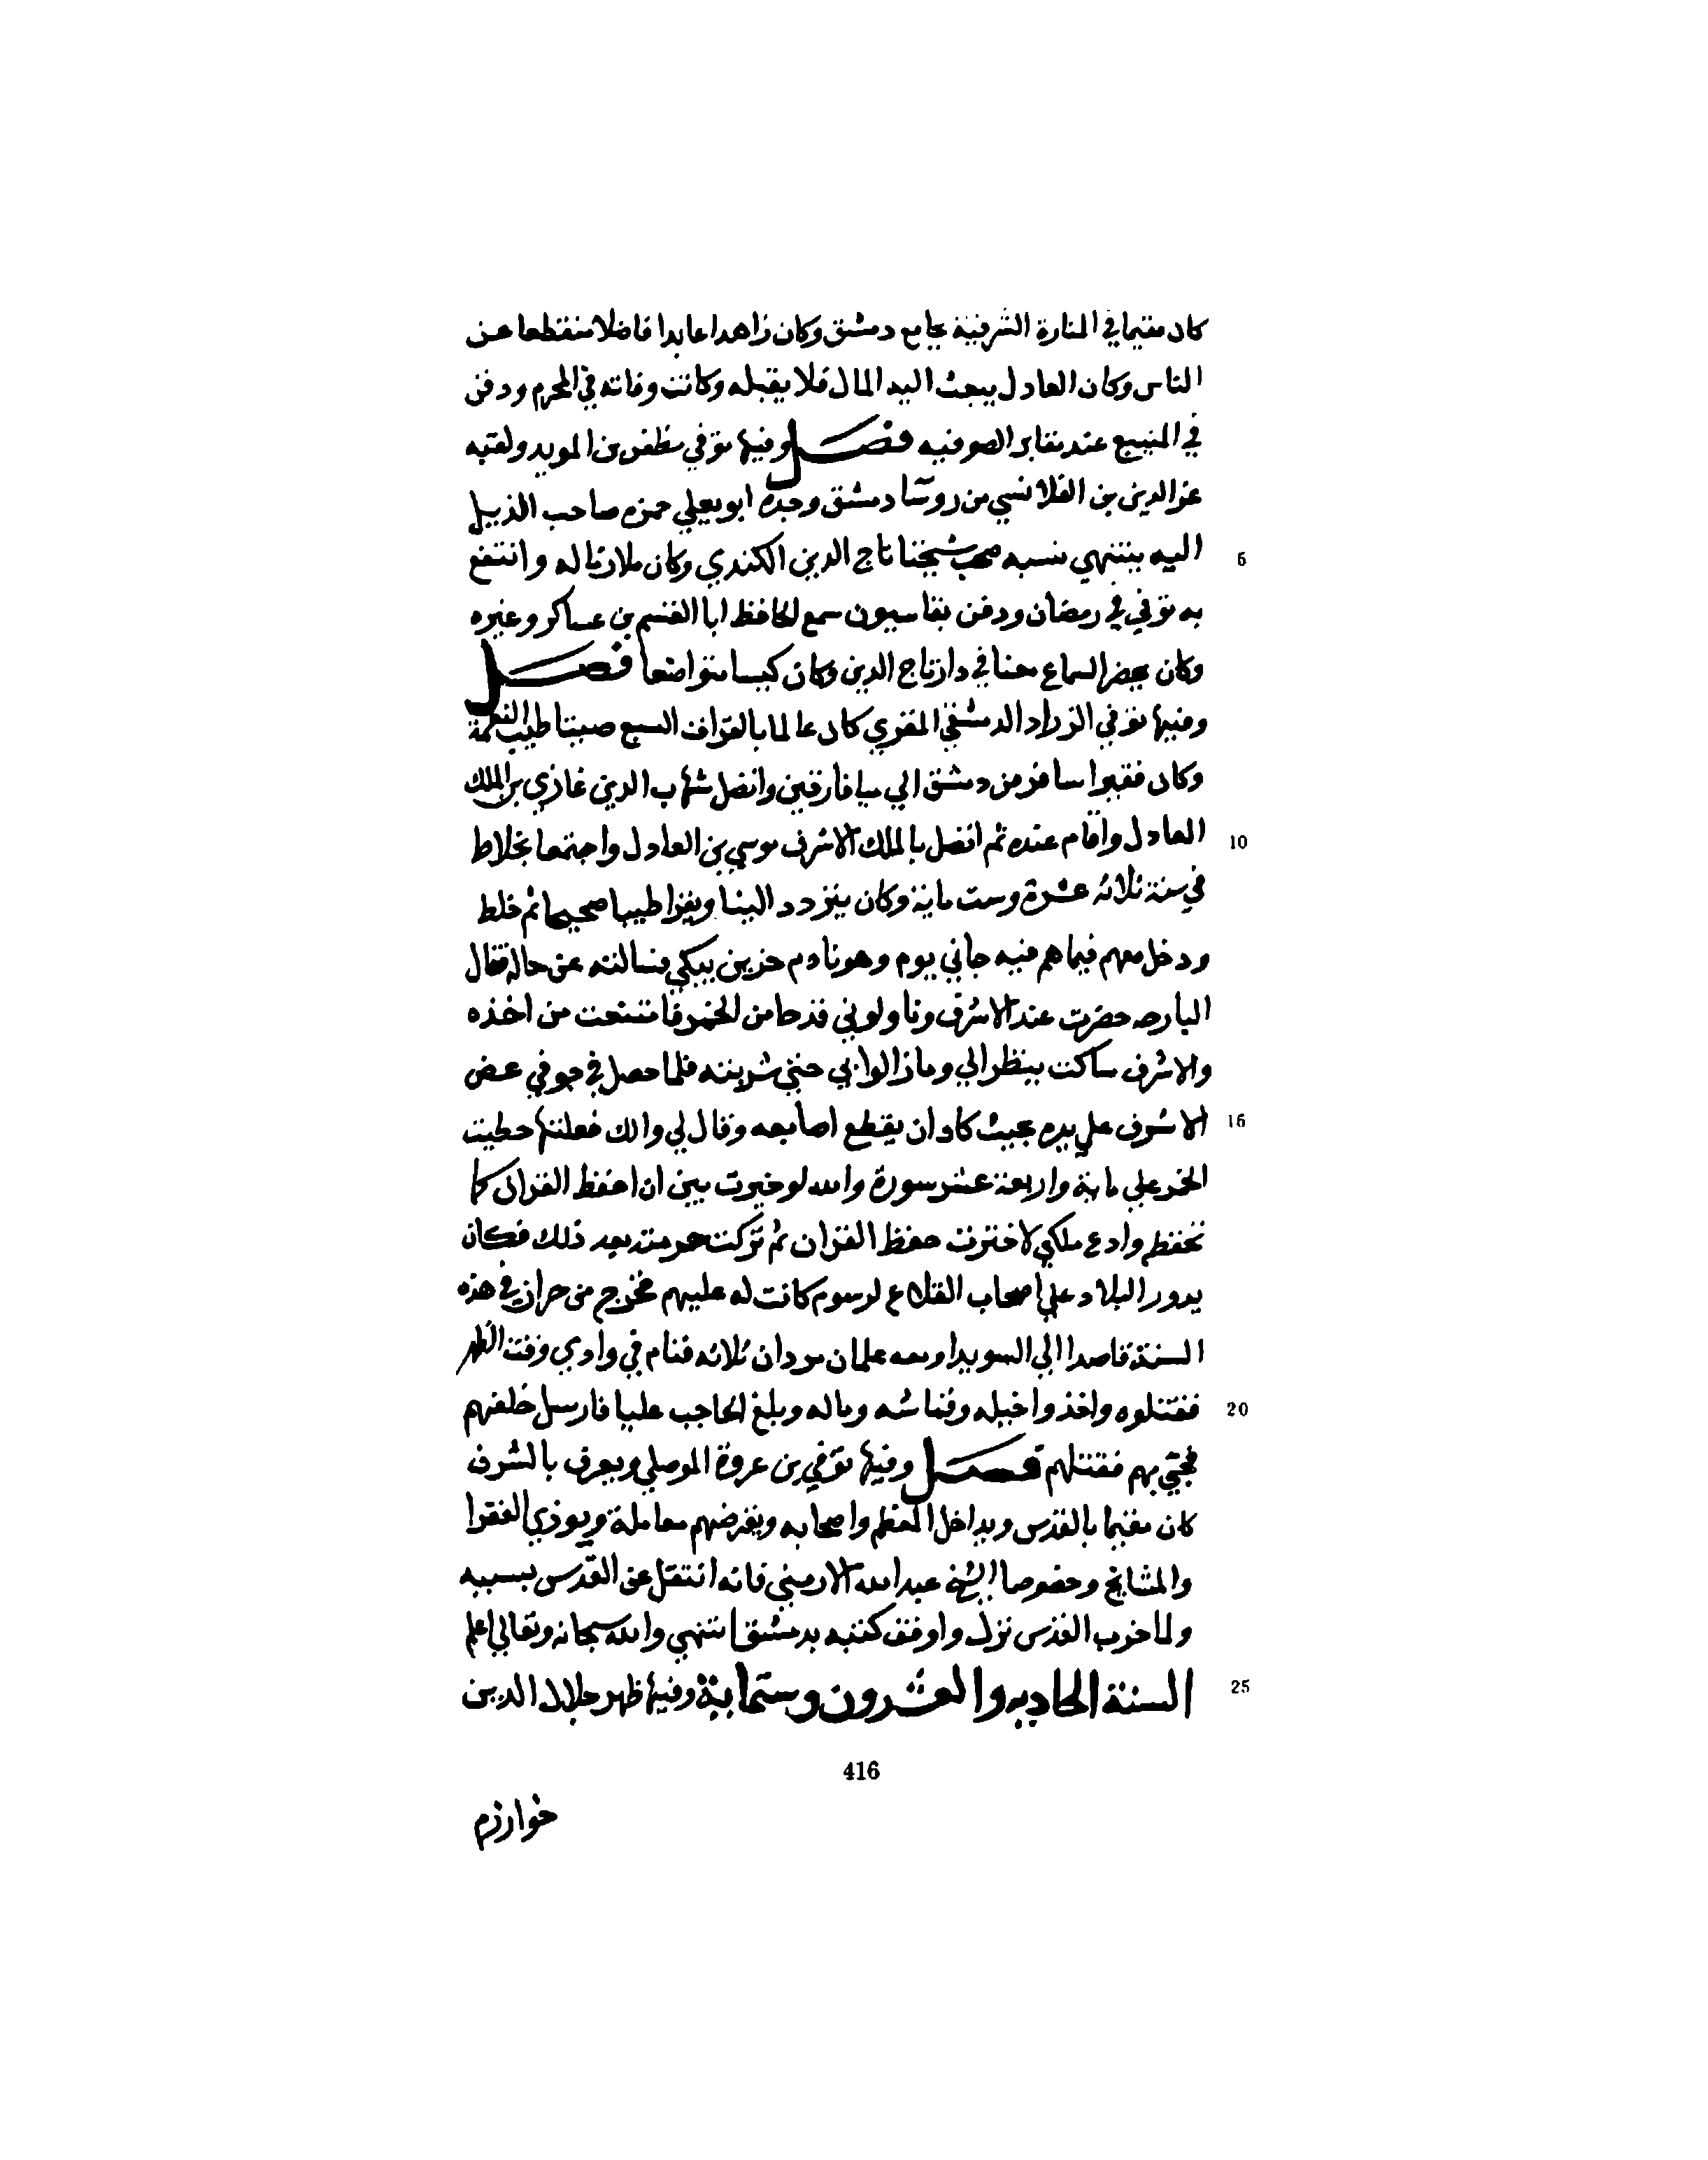 كان مقيما في المنارة الشرقية بجامع دمشق وكان زاهدا عابدا فاضلا منقطعا عن
الناس وكان العادل يبعث اليه المال فلا يقبله وكانت وفاته في المحرم ودفن
في المنيبع عند مقابر الصوفيه فصل وفيها توفي مظفر بن المويد ولقبه
عز الدين بن القلانسي من روسا دمشق وجده ابو يعلي حمزه صاحب الذيل
5 اليه ينتهي نسبه صحب شيخنا تاج الدين الكندي وكان ملازما له وانتفع
به توفي في رمضان ودفن بقاسيون سمع الحافظ ابا القسم بن عساكر وغيره
وكان يحضر السماع معنا في دار تاج الدين وكان كيسا متواضعا فصل
وفيها توفي الزراد الدمشقي المقري كان عالما بالقراات السبع صيتا طيب النغمة
وكان فقيرا سافر من دمشق الي ميافارقين واتصل بشهاب الدين غازي بن الملك
10 العادل واقام عنده ثم اتصل بالملك الاشرف موسي بن العادل واجتمعا بخلاط
في سنة ثلاثه عشرة وست ماية وكان يتردد الينا ويقرا طيبا صحيحا ثم خلط
ودخل معهم فيما هم فيه جاني يوم وهو نادم حزين يبكي فسالته عن حاله فقال
البارحه حضرت عند الاشرف وناولوني قدحا من الخمر فامتنعت من اخذه
والاشرف ساكت ينظر الي وما زالوا بي حتي شربته فلما حصل في جوفي عض
15 الاشرف علي يده بحيث كاد ان يقطع اصابعه وقال لي والك فعلتها حطيت
الخمر علي ماية واربعة عشر سورة والله لو خيرت بين ان احفظ القران كما
تحفظه وادع ملكي لاخترت حفظ القران ثم تركت حرمته بعد ذلك فكان
يدور البلاد علي اصحاب القلاع لرسوم كانت له عليهم فخرج من حران في هذه
السنة قاصدا الي السويدا ومعه غلمان مردان ثلاثه فنام في وادي وقت الظهر
20 فقتلوه واخذوا خيله وقماشه وماله وبلغ الحاجب عليا فارسل خلفهم
فجي بهم فقتلهم فصل وفيها توفي بن عروة الموصلي ويعرف بالشرف
كان مقيما بالقدس ويداخل المعظم واصحابه ويقرضهم معاملة ويوذي الفقرا
والمشايخ وخصوصا الشيخ عبد الله الارمني فانه انتقل عن القدس بسببه
ولما خرب القدس نزل واوقف كتبه بدمشق انتهي والله سبحانه وتعالي اعلم
25 السنة الحاديه والعشرون وستماية وفيها ظهر جلال الدين
416
خوارزم